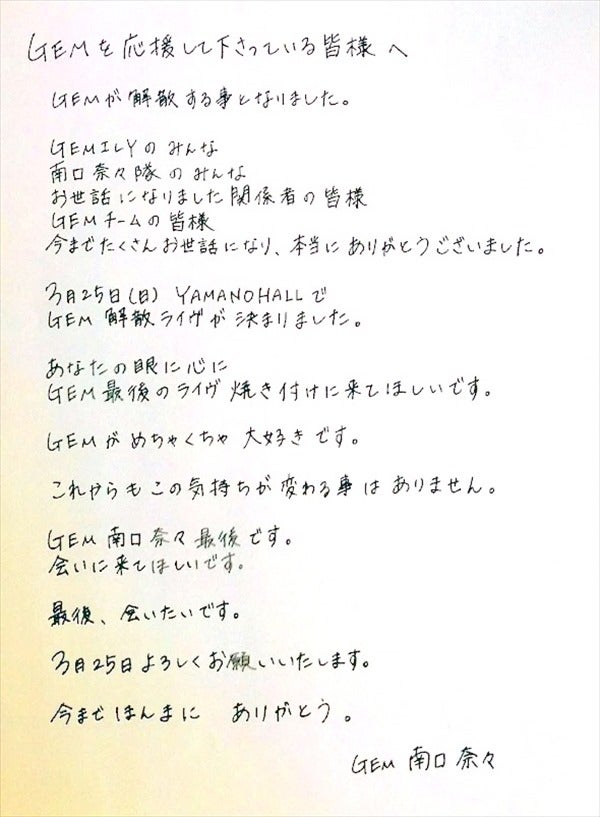 GEMを応援して下さっている皆様へ
GEMが解散する事となりました。
GEMILYのみんな
南口奈々隊のみんな
お世話になりました関係者の皆様
GEMチームの皆様
今までたくさんお世話になり、本当にありがとうございました。
3月25日(日) YAMANOHALLで
GEM 解散ライヴが決まりました。
あなたの眼に心に
GEM最後のライヴ焼き付けに来てほしいです。
GEMがめちゃくちゃ大好きです。
これからもこの気持ちが変わる事はありません。
GEM 南口奈々最後です。
会いに来てほしいです。
最後、会いたいです。
3月25日よろしくお願いいたします。
今までほんまに ありがとう。
GEM 南口奈々